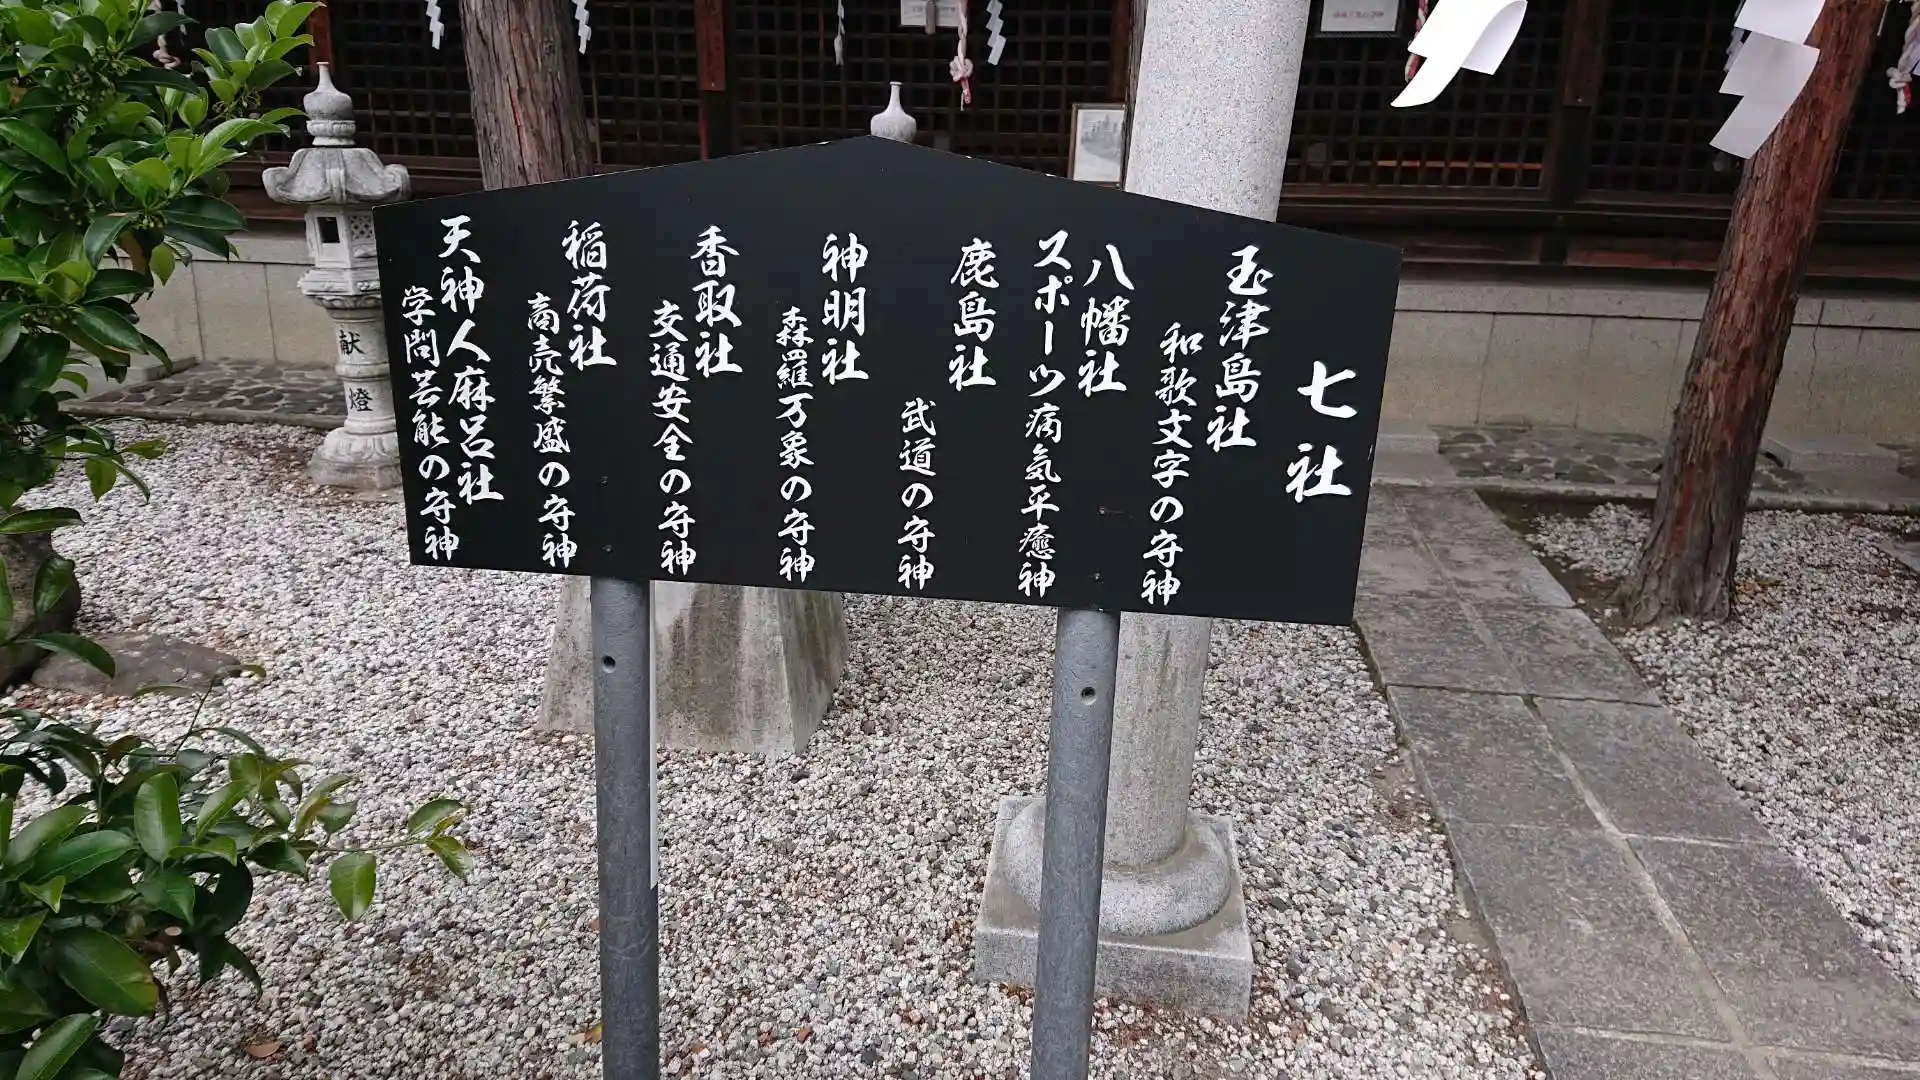 七社
玉津島社
和歌文字の守神
八幡社
スポーツ病気平癒神
鹿島社
武道の守神
神明社
森羅万象の守神
香取社
交通安全の守神
稲荷社
商売繁盛の守神
天神人麻呂社
学問芸能の守神
献燈